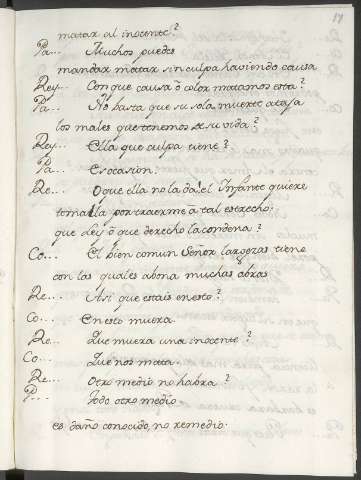 matar al inocente?
Pa... Muchos puedes
mandar matar sin culpa haviendo causa
Rey... Con que causa ô color matamos esta?
Pa... No basta que su sola muerte ataja
los males que tenemos de su vida?
Rey... Ella que culpa tiene?
Pa... Es ocasion.
Re... O que ella no la da: el Infante quiere
tomalla por traerme â tal estrecho:
que Ley ô que derecho la condena?
Co... El bien comun Señor largezas tiene
con las quales abona muchas obras
Re... Asi que estais en esto?
Co... En esto: muera.
Re... Que muera una inocente?
Co... Que nos mata.
Re... Otro medio no habra?
P... Todo otro medio
es daño conocido, no remedio.